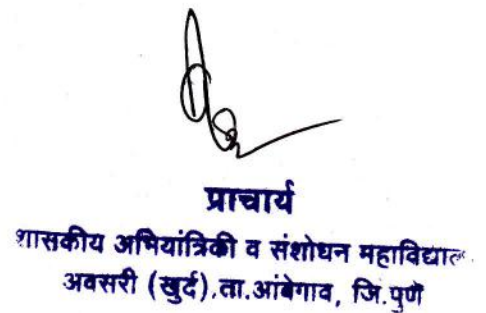 प्राचार्य
शासकीय अभियांत्रिकी व संशोधन महाविद्याल
अवसरी (खुर्द).ता.आंबेगाव, जि.पुणे